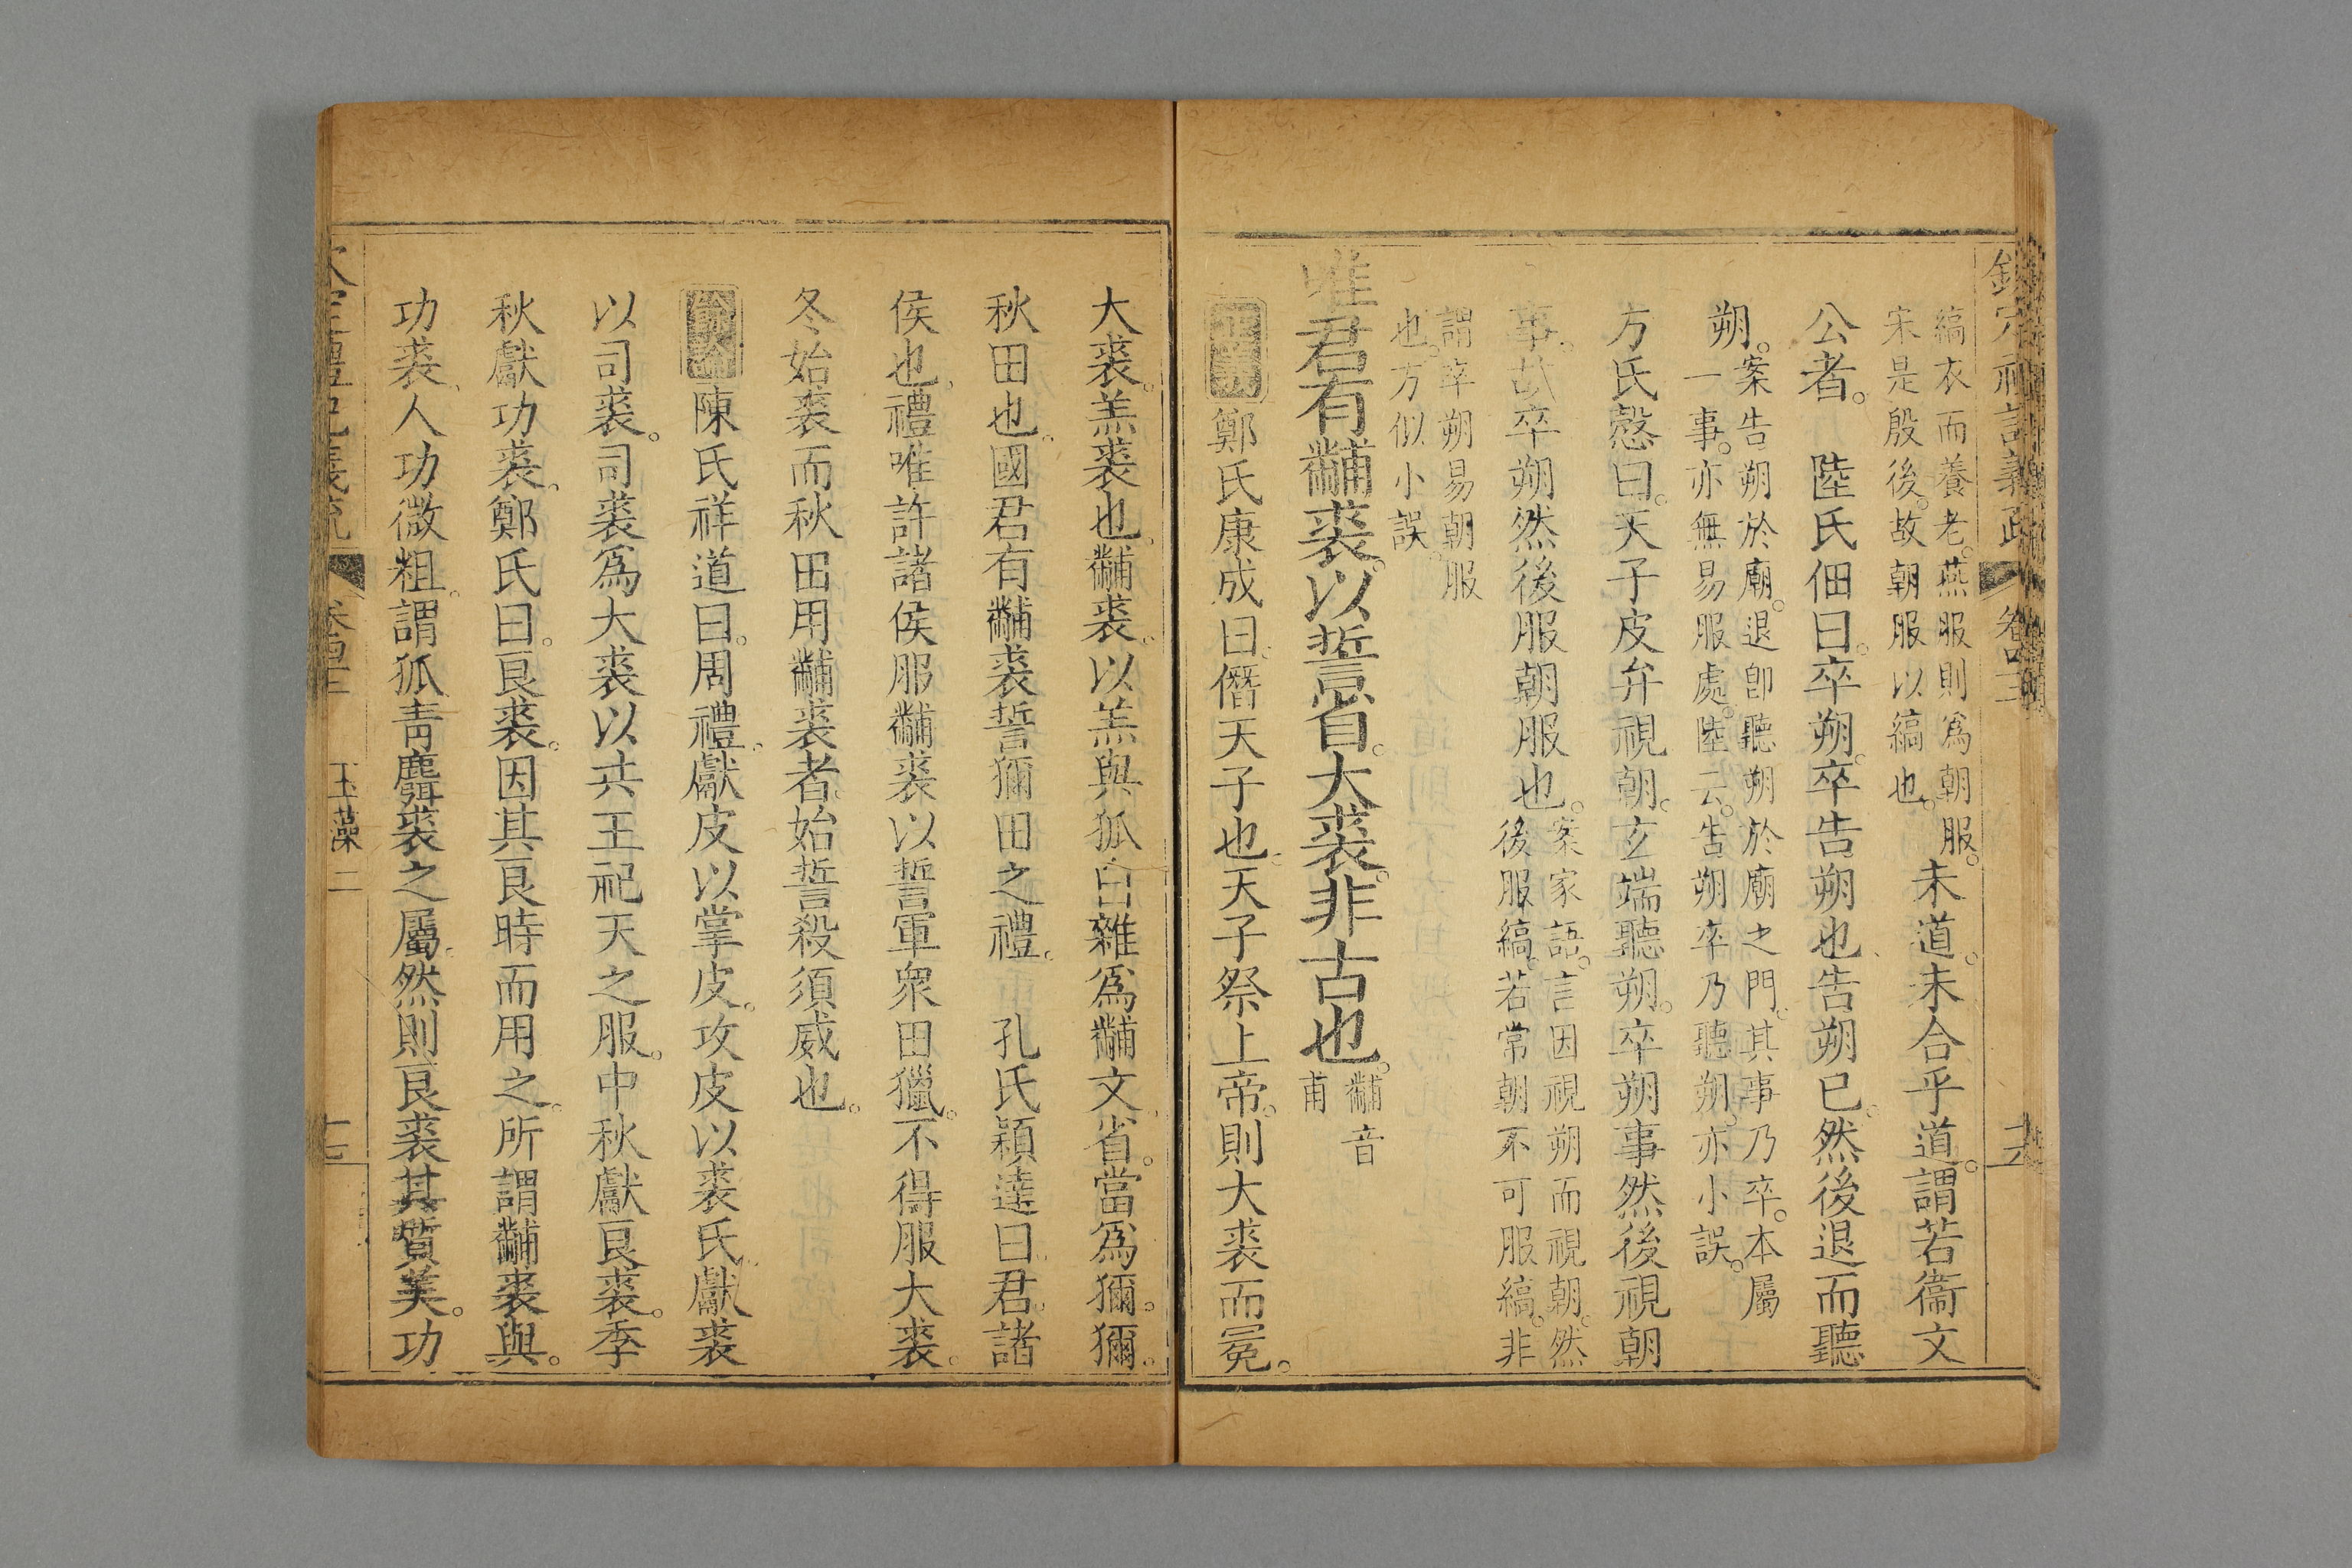 欽定禮記義疏 卷四十一 三
縞衣而養老。燕服則爲朝服。
宋是殷後。故朝服以縞也。
未道。未合乎道。謂若衞文
公者。 陸氏佃曰。卒朔。卒告朔也、告朔已。然後退而聽
朔。
案告朔於廟。退卽聽朔於廟之門。其事乃卒。本屬
一事。亦無易服處。陸云。告朔卒乃聽朔。亦小誤。
方氏慤曰。天子皮弁視朝。玄端聽朔。卒朔事然後視朝
事。故卒朔然後服朝服也。
案家語。言因視朔而視朝。然
後服縞。若常朝不可服縞。非
謂卒朔易朝服
也。方似小誤。
唯君有黼裘。以誓省。大裘。非古也。
黼音
甫
正義 鄭氏康成曰。僭天子也。天子祭上帝。則大裘而冕。
大裘。羔裘也。黼裘。以羔與狐白雜爲黼文。省。當爲獮。獮。
秋田也。國君有黼裘誓獮田之禮。 孔氏穎達曰。君。諸
侯也。禮唯許諸侯服黼裘以誓軍衆田獵。不得服大裘。
冬始裘而秋田用黼裘者。始誓殺須威也。
餘論 陳氏祥道曰。周禮。獻皮以掌皮。攻皮以裘氏。獻裘
以司裘。司裘爲大裘以共王祀天之服。中秋獻良裘。季
秋獻功裘。鄭氏曰。良裘。因其良時而用之。所謂黼裘與。
功裘、人功微粗。謂狐青麛裘之屬。然則良裘其質美。功
欽定禮記義疏 玉藻二